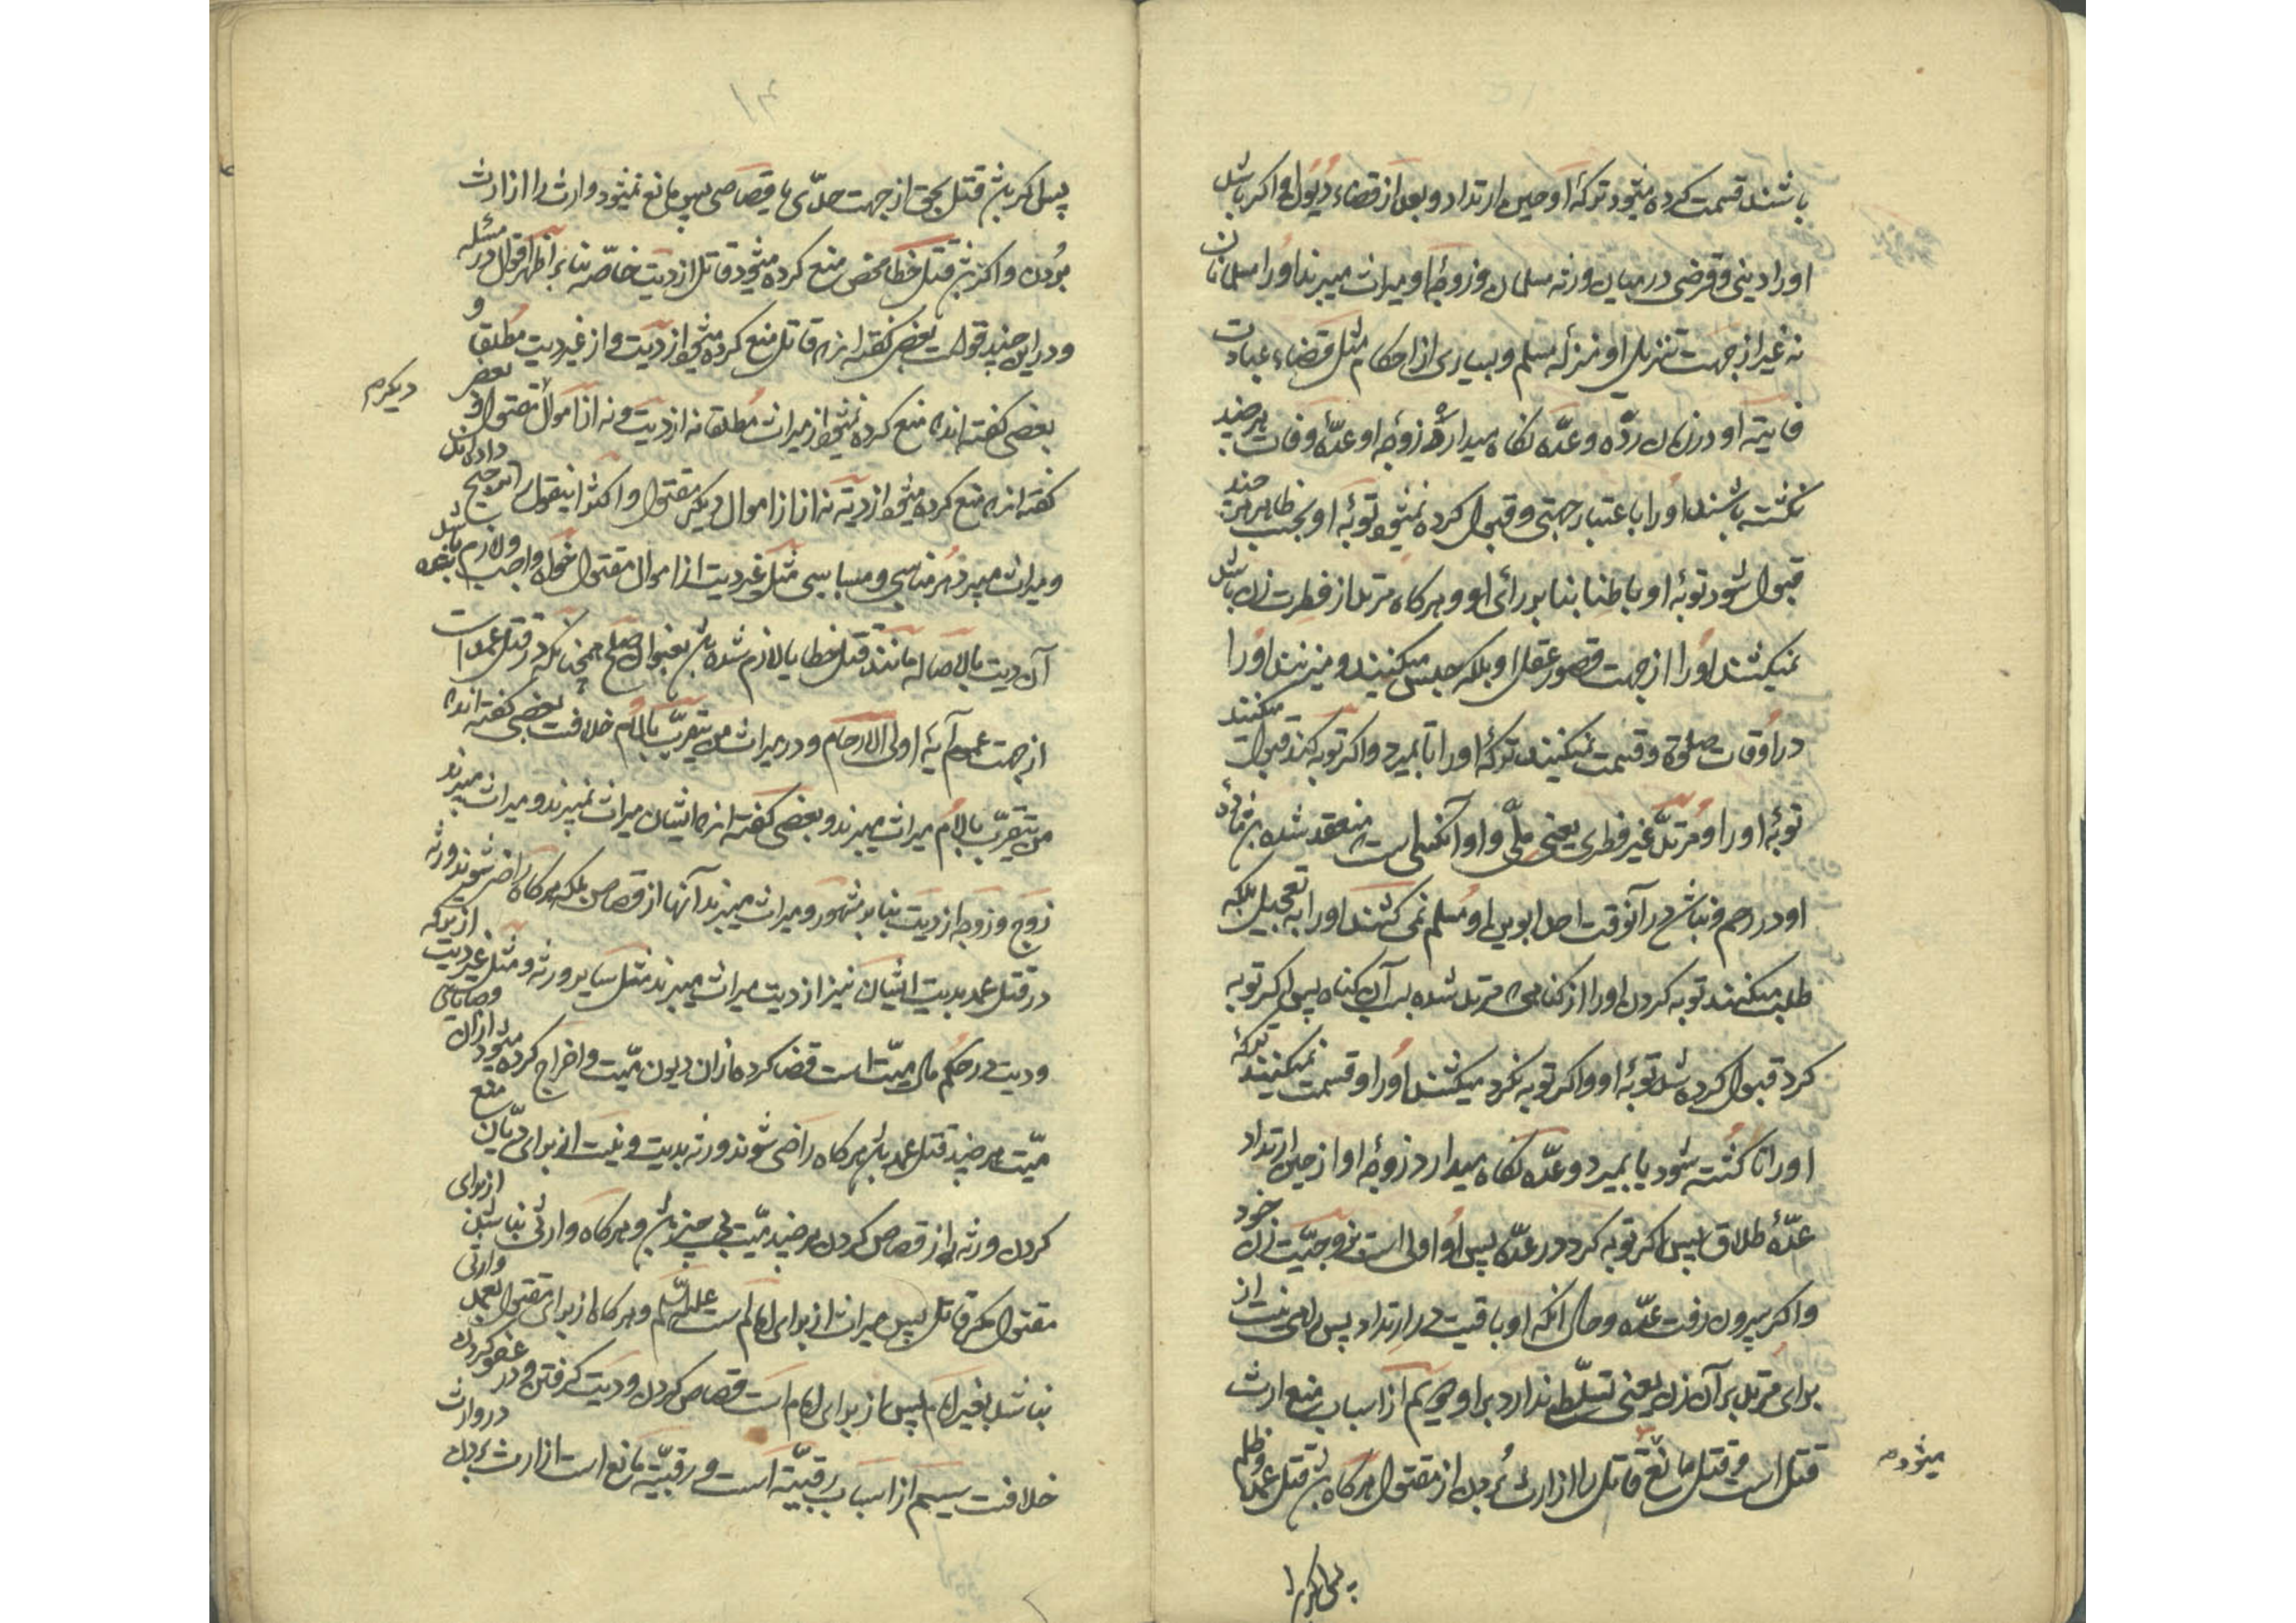 باشند قسمت کرده میشود ترکهٔ او حین ارتداد و بعد از قضاء دیون او اکر باشد
او را دینی و قرضی در میان ورثه مسلمان و زوجهٔ او میراث میبرند او را مسلمانان
نه غیر از جهت تنزیل او منزله مسلم و بسیاری از احکام مثل قضاء عبادت
فایتهٔ او در زمان ردّه و عدّه نکاه میدارد زوجهٔ او عدّه وفات هر چند
نکشته باشند او را باعتبار جهتی و قبول کرده نمیشود توبهٔ او بحسب ظاهر هر چند
قبول شود توبهٔ او باطنا بنا بر رائی او و هر کاه مرتد از فطرت زن باشد
نمیکشند او را از جهت قصور عقل او بلکه حبس میکنند و میزنند او را
در اوقات صلوة و قسمت نمیکنند ترکهٔ او را تا بمیرد و اکر توبه کند قبول میکنند
توبهٔ او را و مرتدّ غیر فطری یعنی ملّی و او آنکسی است که منعقد شده مادهٔ
او در رحم و نباشد در آنوقت احد ابوین او مسلم نمی کشند او را به تعجیل بلکه
طلب میکنند توبه کردن او را از کناهی که مرتد شده بسبب آن کناه پس اکر توبه
کرد قبول کرده شد توبهٔ او و اکر توبه نکرد میکشند او را و قسمت نمیکنند ترکهٔ
او را تا کشته شود یا بمیرد و عدّه نکاه میدارد زوجهٔ او از حین ارتداد
عدّهٔ طلاق پس اکر توبه کرد در عدّه پس او اولی است بزوجیّت زن خود
و اکر بیرون رفت عدّه و حال انکه او باقیست در ارتداد پس راهی نیست از
برای مرتد بر آن زن یعنی تسلّط ندارد بر او دویم از اسباب منع ارث
قتل است و قتل مانع میشود قاتل را از ارث بردن از مقتول هر کاه باشد قتل عمد و ظلم
پس اکر
۱۳
پس اکر باشد قتل بحق از جهت حدّی یا قصاصی پس مانع نمیشود وارث را از ارث
بودن و اکر باشد قتل خطا محض منع کرده میشود قاتل از دیت خاصّه بنا بر اظهر اقوال در مسئله
و در این چند قولست بعضی کفته اند که قاتل منع کرده میشود از دیت و از غیر دیت مطلقا و
بعضی کفته اند که منع کرده نمیشود از میراث مطلقا نه از دیت و نه از اموال مقتول و بعض
دیکرم
کفته اند که منع کرده میشود از دیه نه از اموال دیکر مقتول و اکثر اینقول را ترجیح داده اند
و میراث میبرد هر مناسبی و مسابیی مثل غیر دیت از اموال مقتول خواه واجب و لازم باشد
آن دیت بالاصاله مانند قتل خطا یا لازم شده باشد بعنوان صلح همچنانکه در قتل عمد است
از جهت عموم آیهٔ اولی الارحام و در میراث من یتقرّب بالام خلافست بعضی کفته اند که
من یتقرّب بالام میراث میبرند و بعضی کفته اند که ایشان میراث نمیبرند و میراث میبرند
زوج و زوجه از دیت بنا بر مشهور و میراث نمیبرند آنها از قصاص بلکه هر کاه راضی شوند ورثه
در قتل عمد بدیت ایشان نیز از دیت میراث میبرند مثل سایر ورثه و مثل غیر دیت از ترکه
و دیت در حکم مال میّت است قضا کرده از ان دیون میّت و اخراج کرده میشود از آن وصایای
میّت هر چند قتل عمد باشد هر کاه راضی شوند ورثه بدیت و نیست از برای دیّان منع
کردن ورثه را از قصاص کردن هر چند میّت بی چیز باشد و هر کاه وارثی نباشد از برای
مقتول مکر قاتل پس میراث از برای امام است علیه السّلم و هر کاه از برای مقتول بعمد وارثی
نباشد بغیر امام پس از برای امام است قصاص کردن و دیت کرفتن و در عفو کردن
خلافست سیم از اسباب رقیّت است و رقیّة مانع است از ارث بردن در وارث